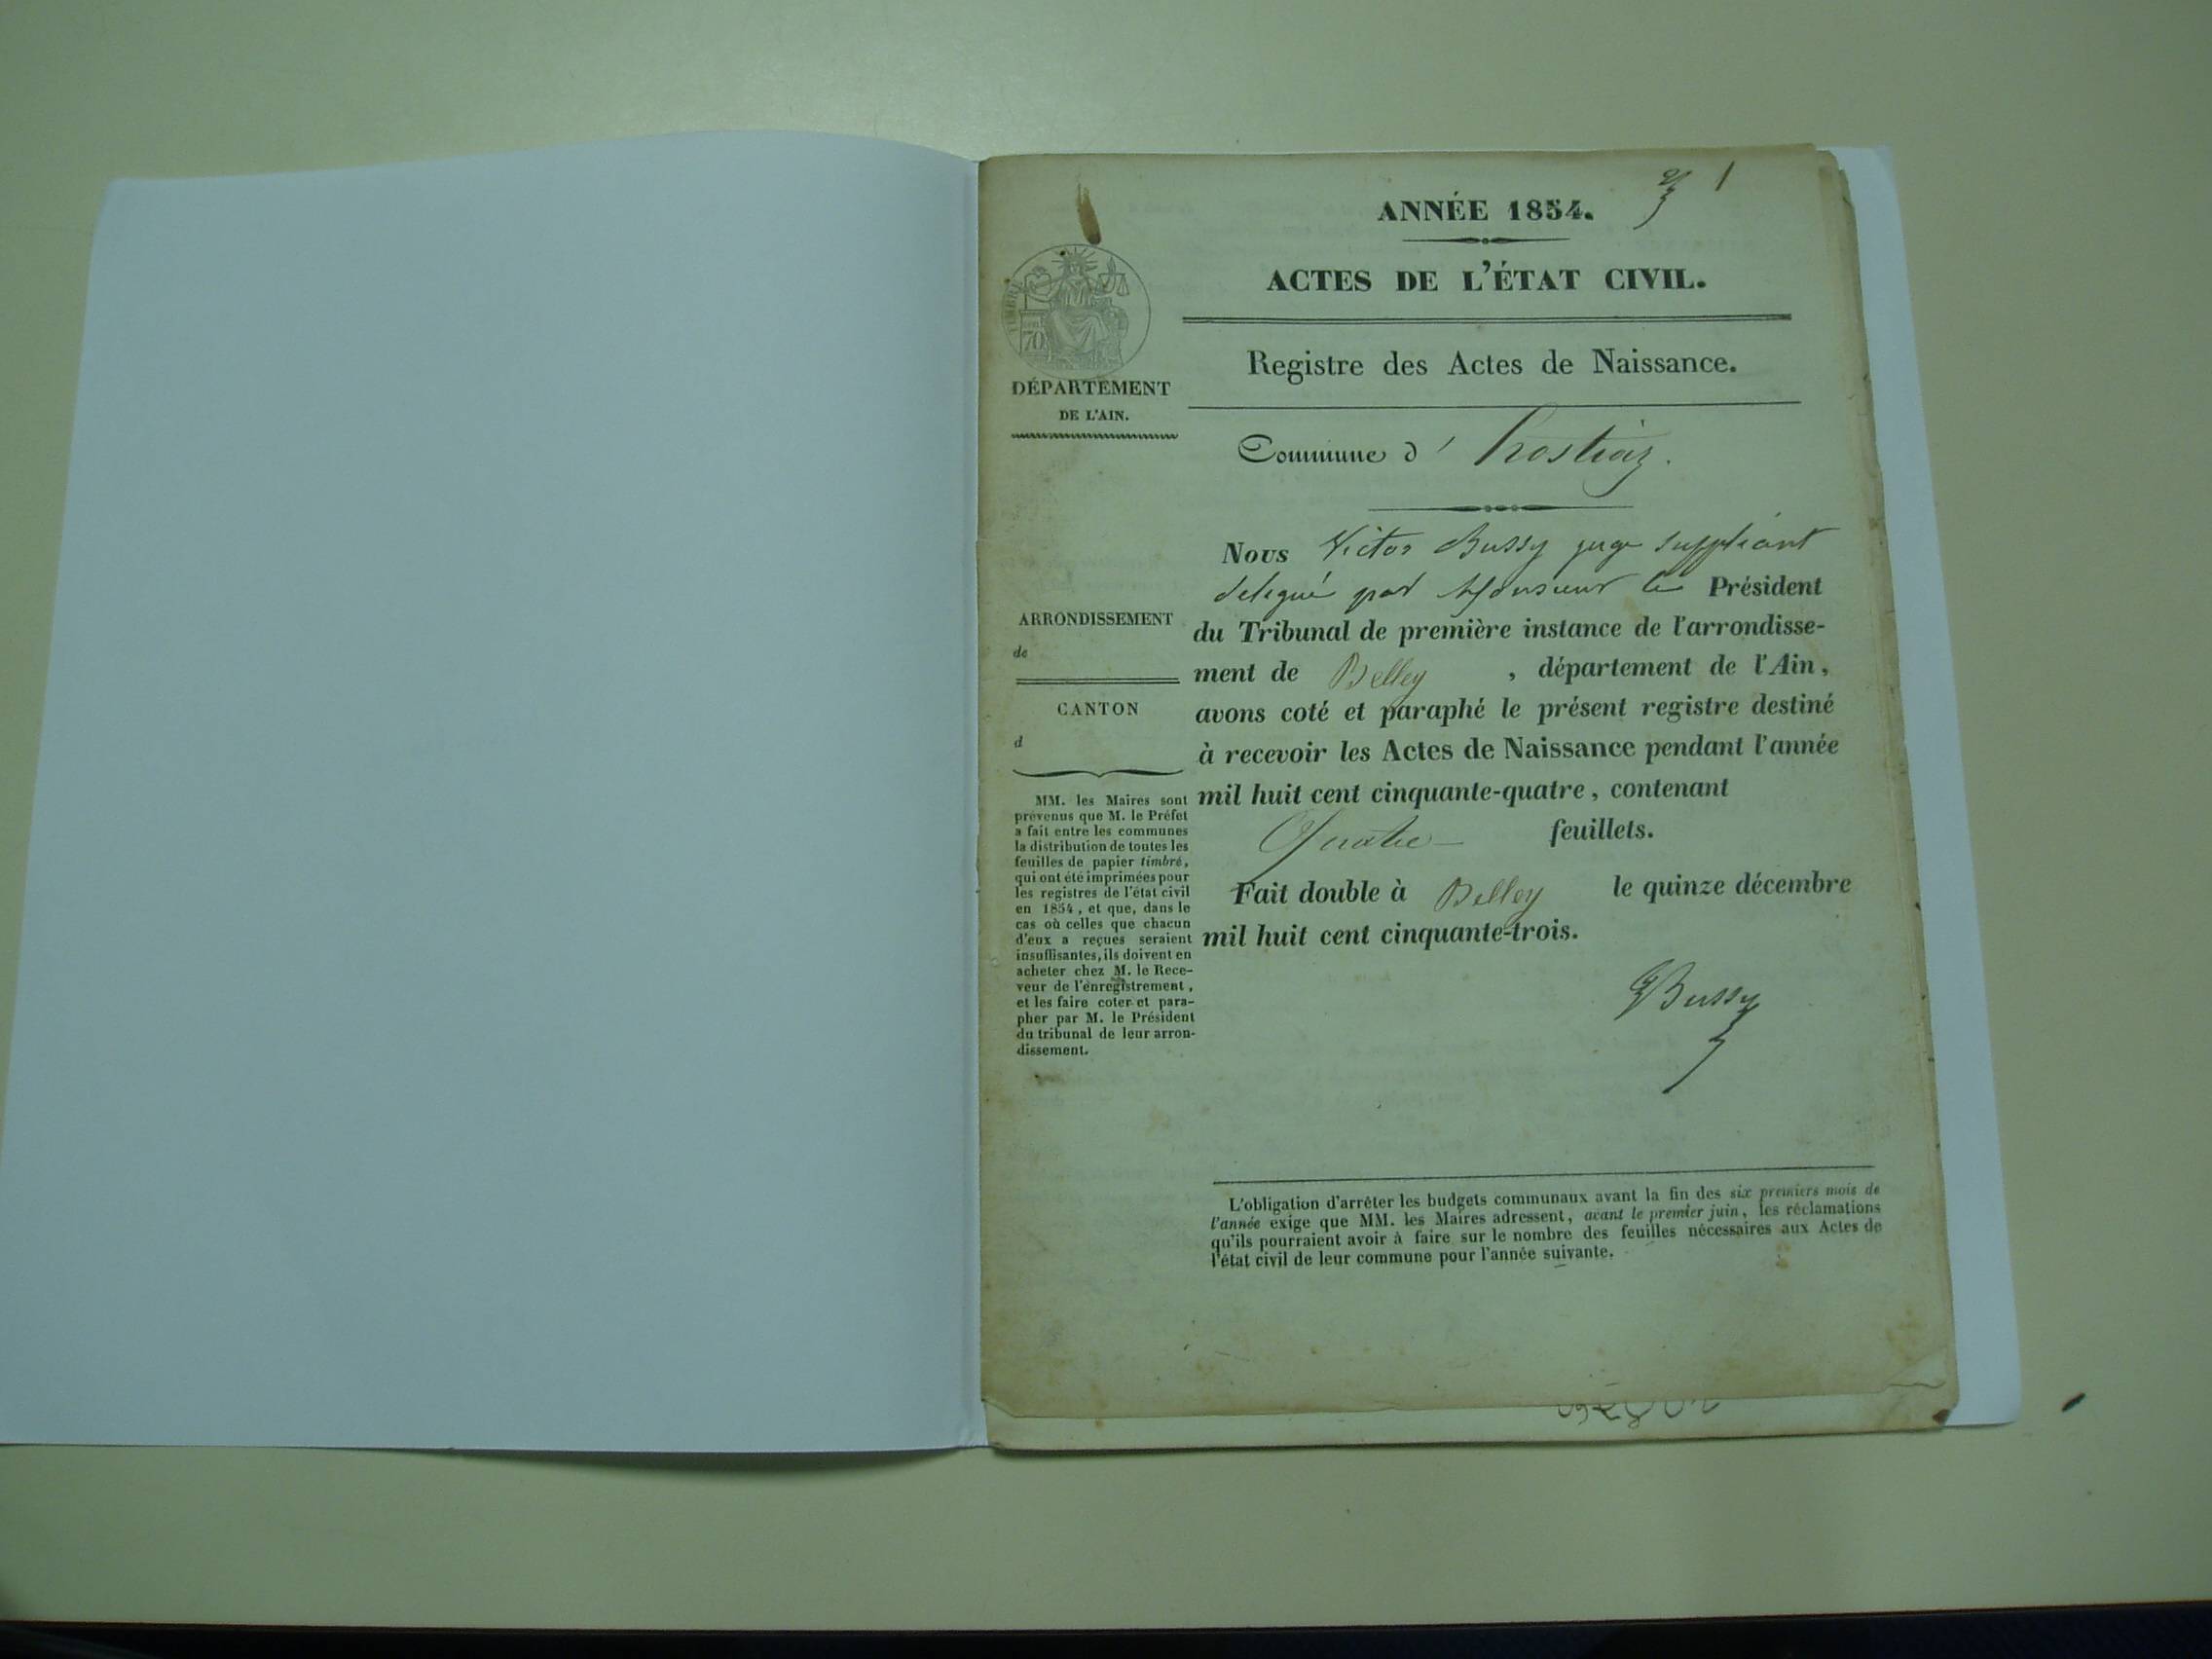 1
ANNÉE 1854.
ACTES DE L'ÉTAT CIVIL.
Registre des Actes de Naissance.
TIMBRE
70
DÉPARTEMENT
DE L'AIN.
Commune d' hostiaz.
Nous Victor Bussy juge suppléant
délégué par Monsieur le Président
du Tribunal de première instance de l'arrondisse-
ment de Belley , département de l'Ain,
avons coté et paraphé le présent registre destiné
à recevoir les Actes de Naissance pendant l'année
mil huit cent cinquante-quatre, contenant
Quatre feuillets.
Fait double à Belley le quinze décembre
mil huit cent cinquante-trois.
Bussy
ARRONDISSEMENT
de
CANTON
d
MM. les Maires sont
prévenus que M. le Préfet
a fait entre les communes
la distribution de toutes les
feuilles de papier timbré,
qui ont été imprimées pour
les registres de l'état civil
en 1854, et que, dans le
cas où celles que chacun
d'eux a reçues seraient
insuffisantes, ils doivent en
acheter chez M. le Rece-
veur de l'enregistrement,
et les faire coter et para-
pher par M. le Président
du tribunal de leur arron-
dissement.
L'obligation d'arrêter les budgets communaux avant la fin des six premiers mois de
l'année exige que MM. les Maires adressent, avant le premier juin, les réclamations
qu'ils pourraient avoir à faire sur le nombre des feuilles nécessaires aux Actes de
l'état civil de leur commune pour l'année suivante.